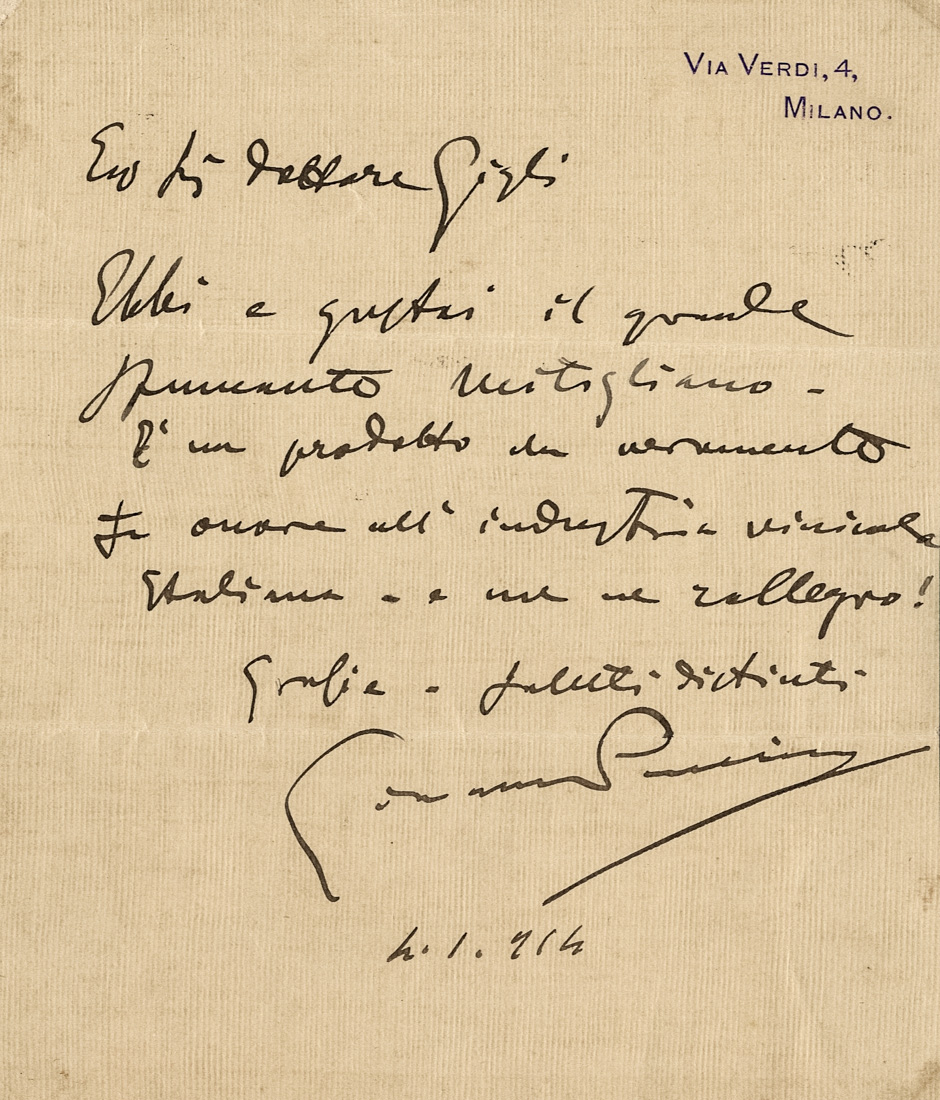 VIA VERDI, 4,
MILANO.
Eg Sig dottore Gigli
Ebbi e gustai il grande
spumante Mitigliano -
E' un prodotto che veramente
fa onore all' industria vinicola
Italiana - e me ne rallegro!
Grazie - saluti distinti
Giacomo Puccini
4. 1. 914